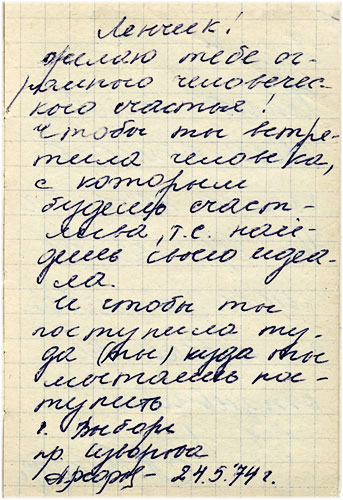 Ленчик!
желаю тебе ог-
ромного человечес-
кого счастья!
Чтобы ты встре-
тила человека,
с которым
будешь счаст-
лива, т.е. най-
дешь своего идеа-
ла.
И чтобы ты
поступила ту-
да (ты) куда ты
мечтаешь пос-
тупить
г. Выборг
пр. Суворова
24.5.74 г.